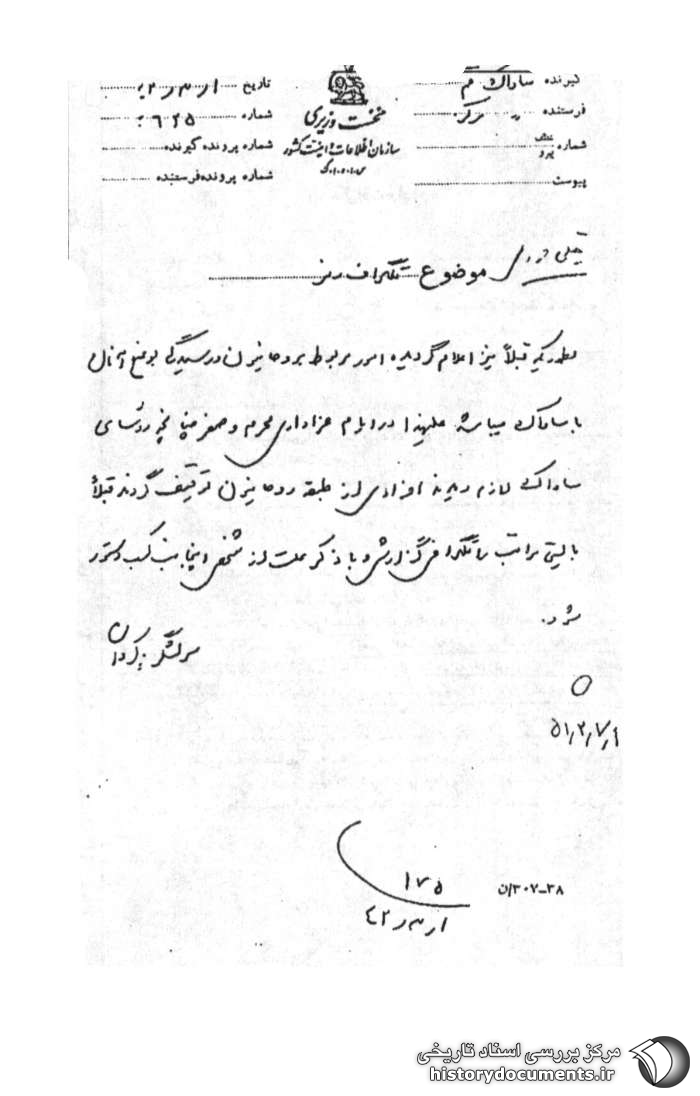 گیرنده ساواک قم
فرستنده مرکز
شماره عطف پیرو
پیوست
نخست وزیری
سازمان اطلاعات و امنیت کشور
س.ا.و.ا.ک
تاریخ ۱ر۳ر۴۲
شماره ۶۲۵
شماره پرونده گیرنده
شماره پرونده فرستنده
خیلی فوری
موضوع تلگراف رمز
بطوریکه قبلاً نیز اعلام گردیده امور مربوط بروحانیون و رسیدگی بوضع آنان
با ساواک میباشد علیهذا در ایام عزاداری محرم و صفر چنانچه رؤسای
ساواک لازم دیدند افرادی از طبقه روحانیون توقیف گردند قبلاً
بایستی مراتب را تلگرافی گزارش و با ذکر علت از شخص اینجانب کسب دستور
شود.
سرلشگر پاکروان
۱۷۵
۱ر۳ر۴۲
۳۸-۳۰۷/ن
مرکز بررسی اسناد تاریخی
historydocuments.ir